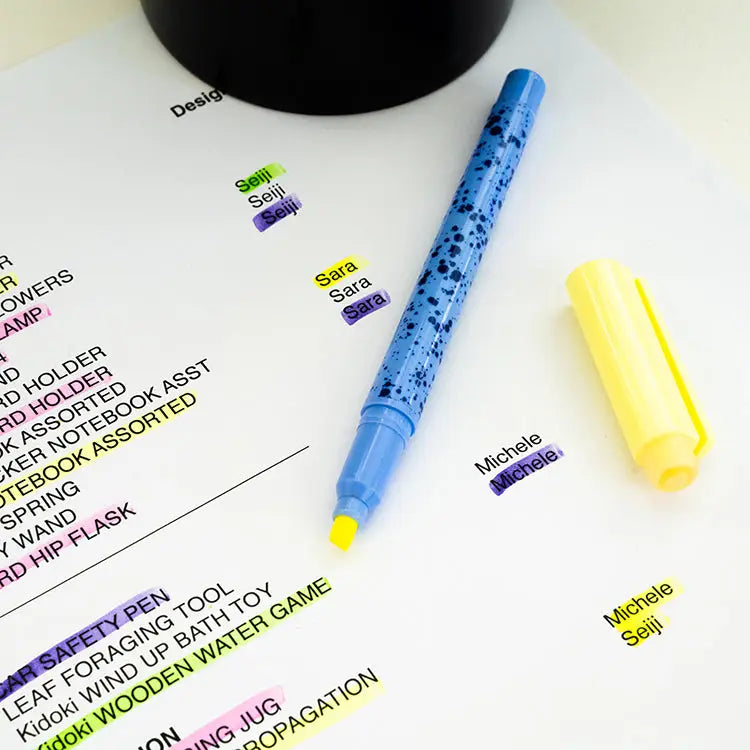 Design
Seiji
Seiji
Seiji
Sara
Sara
Sara
Michele
Michele
Michele
Seiji
R
ER
LOWERS
LAMP
4
ND
RD HOLDER
RD HOLDER
OK ASSORTED
CKER NOTEBOOK ASST
OTEBOOK ASSORTED
SPRING
Y WAND
RD HIP FLASK
CAR SAFETY PEN
LEAF FORAGING TOOL
Kidoki WIND UP BATH TOY
Kidoki WOODEN WATER GAME
ION
ING JUG
PROPAGATION